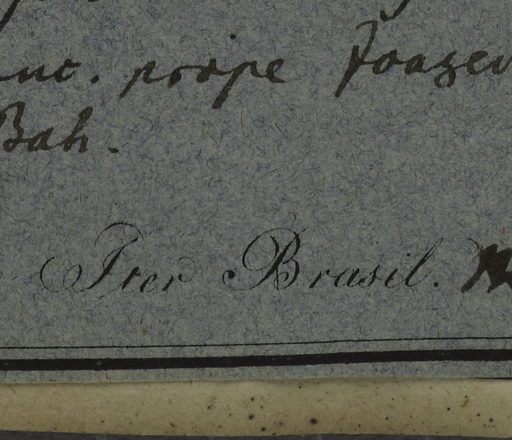 prope Joazei
Bah.
Iter Brasil.